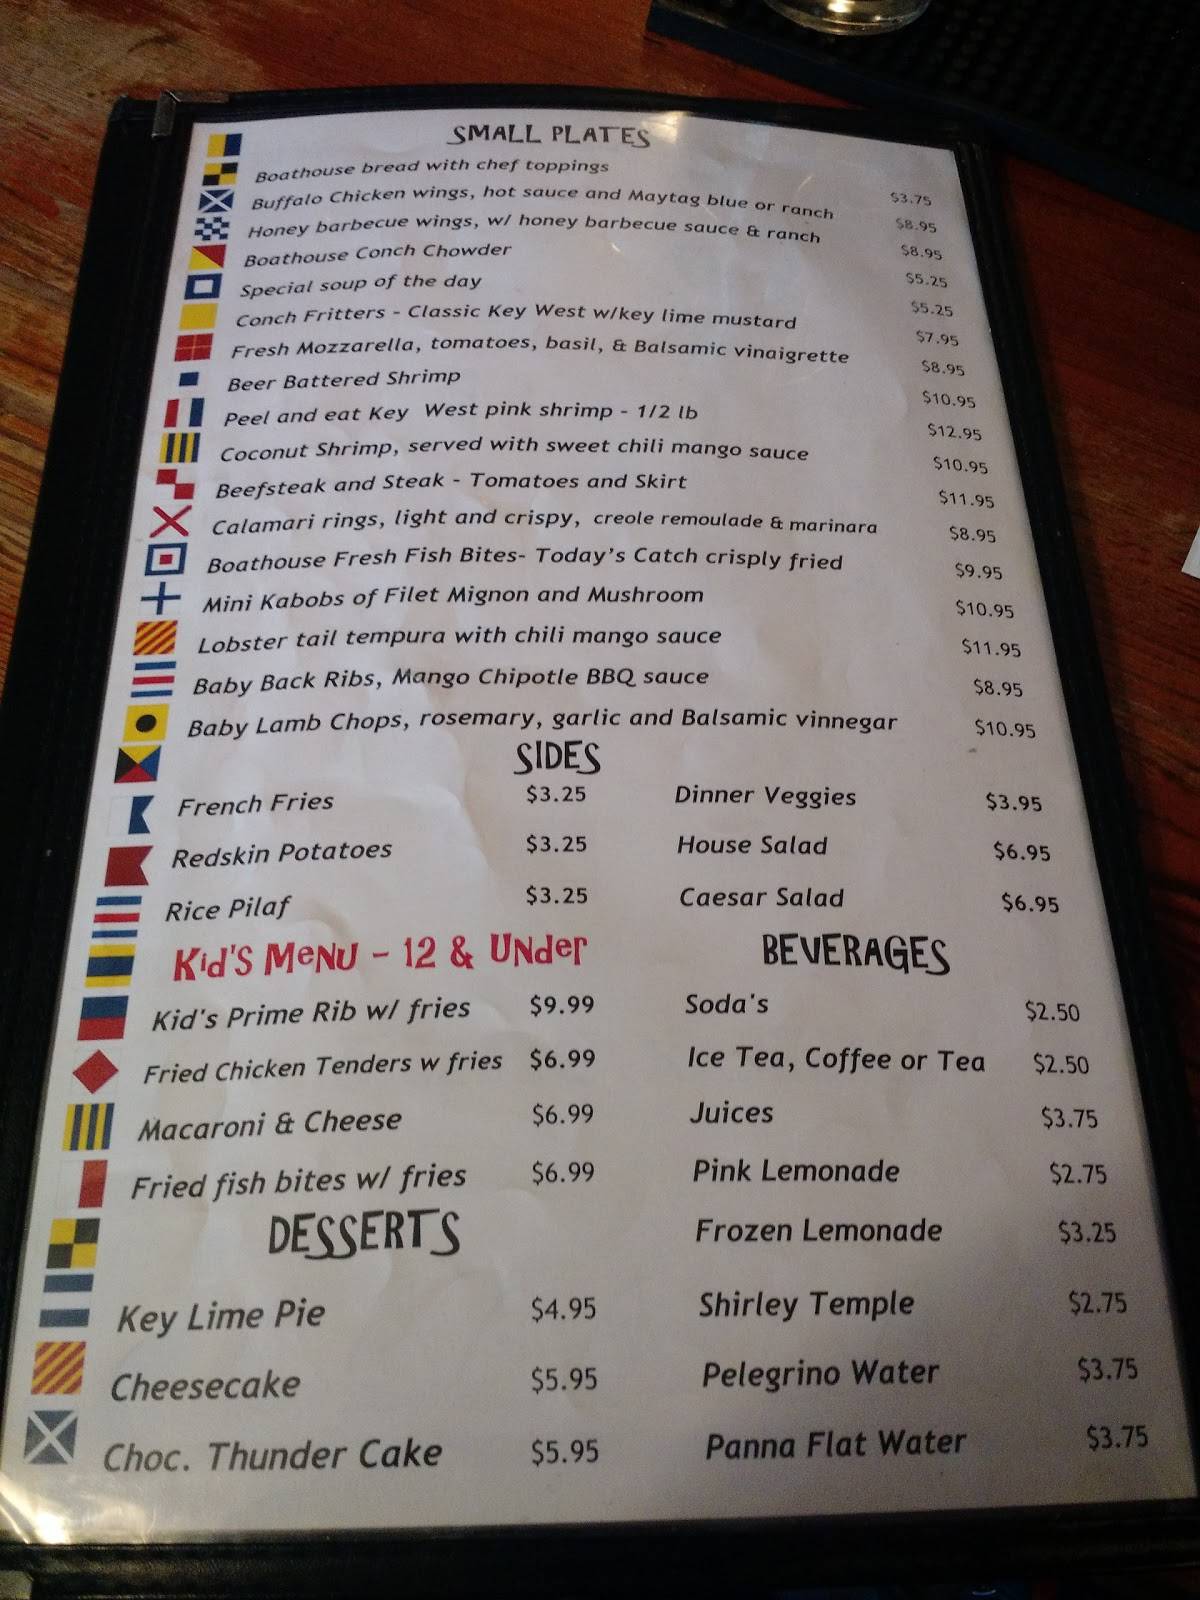 SMALL PLATES
Boathouse bread with chef toppings $3.75
Buffalo Chicken wings, hot sauce and Maytag blue or ranch $8.95
Honey barbecue wings, w/ honey barbecue sauce & ranch $8.95
Boathouse Conch Chowder $5.25
Special soup of the day $5.25
Conch Fritters - Classic Key West w/key lime mustard $7.95
Fresh Mozzarella, tomatoes, basil, & Balsamic vinaigrette $8.95
Beer Battered Shrimp $10.95
Peel and eat Key West pink shrimp - 1/2 lb $12.95
Coconut Shrimp, served with sweet chili mango sauce $10.95
Beefsteak and Steak - Tomatoes and Skirt $11.95
Calamari rings, light and crispy, creole remoulade & marinara $8.95
Boathouse Fresh Fish Bites- Today's Catch crisply fried $9.95
Mini Kabobs of Filet Mignon and Mushroom $10.95
Lobster tail tempura with chili mango sauce $11.95
Baby Back Ribs, Mango Chipotle BBQ sauce $8.95
Baby Lamb Chops, rosemary, garlic and Balsamic vinnegar $10.95
SIDES
French Fries $3.25
Redskin Potatoes $3.25
Rice Pilaf $3.25
Dinner Veggies $3.95
House Salad $6.95
Caesar Salad $6.95
Kid'S MeNU - 12 & UNder
Kid's Prime Rib w/ fries $9.99
Fried Chicken Tenders w fries $6.99
Macaroni & Cheese $6.99
Fried fish bites w/ fries $6.99
DESSERTS
Key Lime Pie $4.95
Cheesecake $5.95
Choc. Thunder Cake $5.95
BEVERAGES
Soda's $2.50
Ice Tea, Coffee or Tea $2.50
Juices $3.75
Pink Lemonade $2.75
Frozen Lemonade $3.25
Shirley Temple $2.75
Pelegrino Water $3.75
Panna Flat Water $3.75